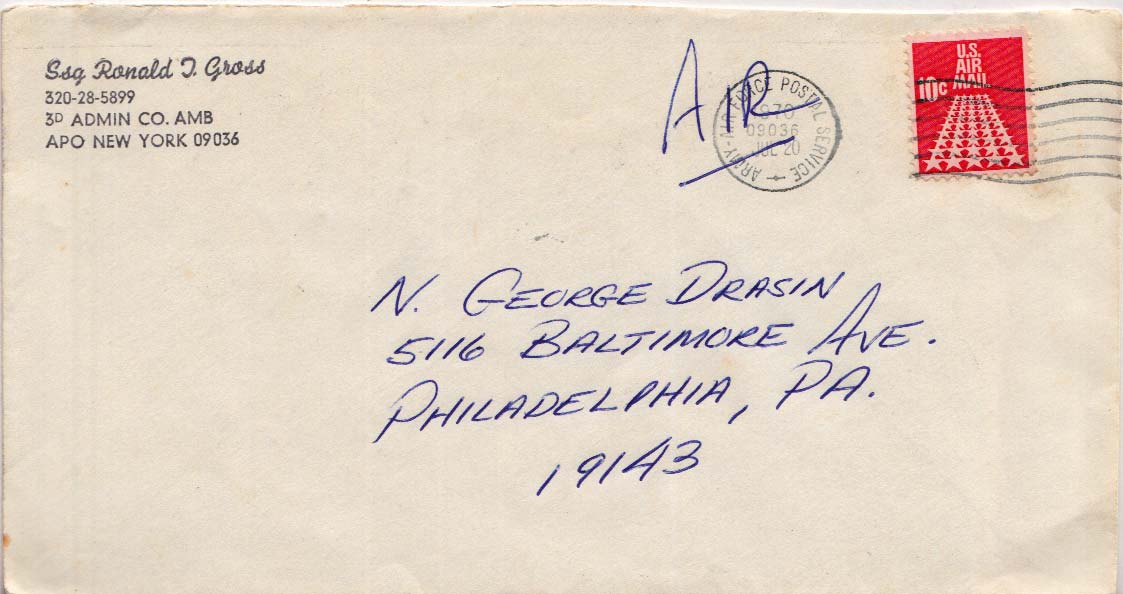 Ssg Ronald T. Gross
320-28-5899
3D ADMIN CO. AMB
APO NEW YORK 09036
AIR
ARMY-AIR FORCE POSTAL SERVICE
1970
09036
JUL 20
U.S.
AIR
MAIL
10c
N. GEORGE DRASIN
5116 BALTIMORE AVE.
PHILADELPHIA, PA.
19143